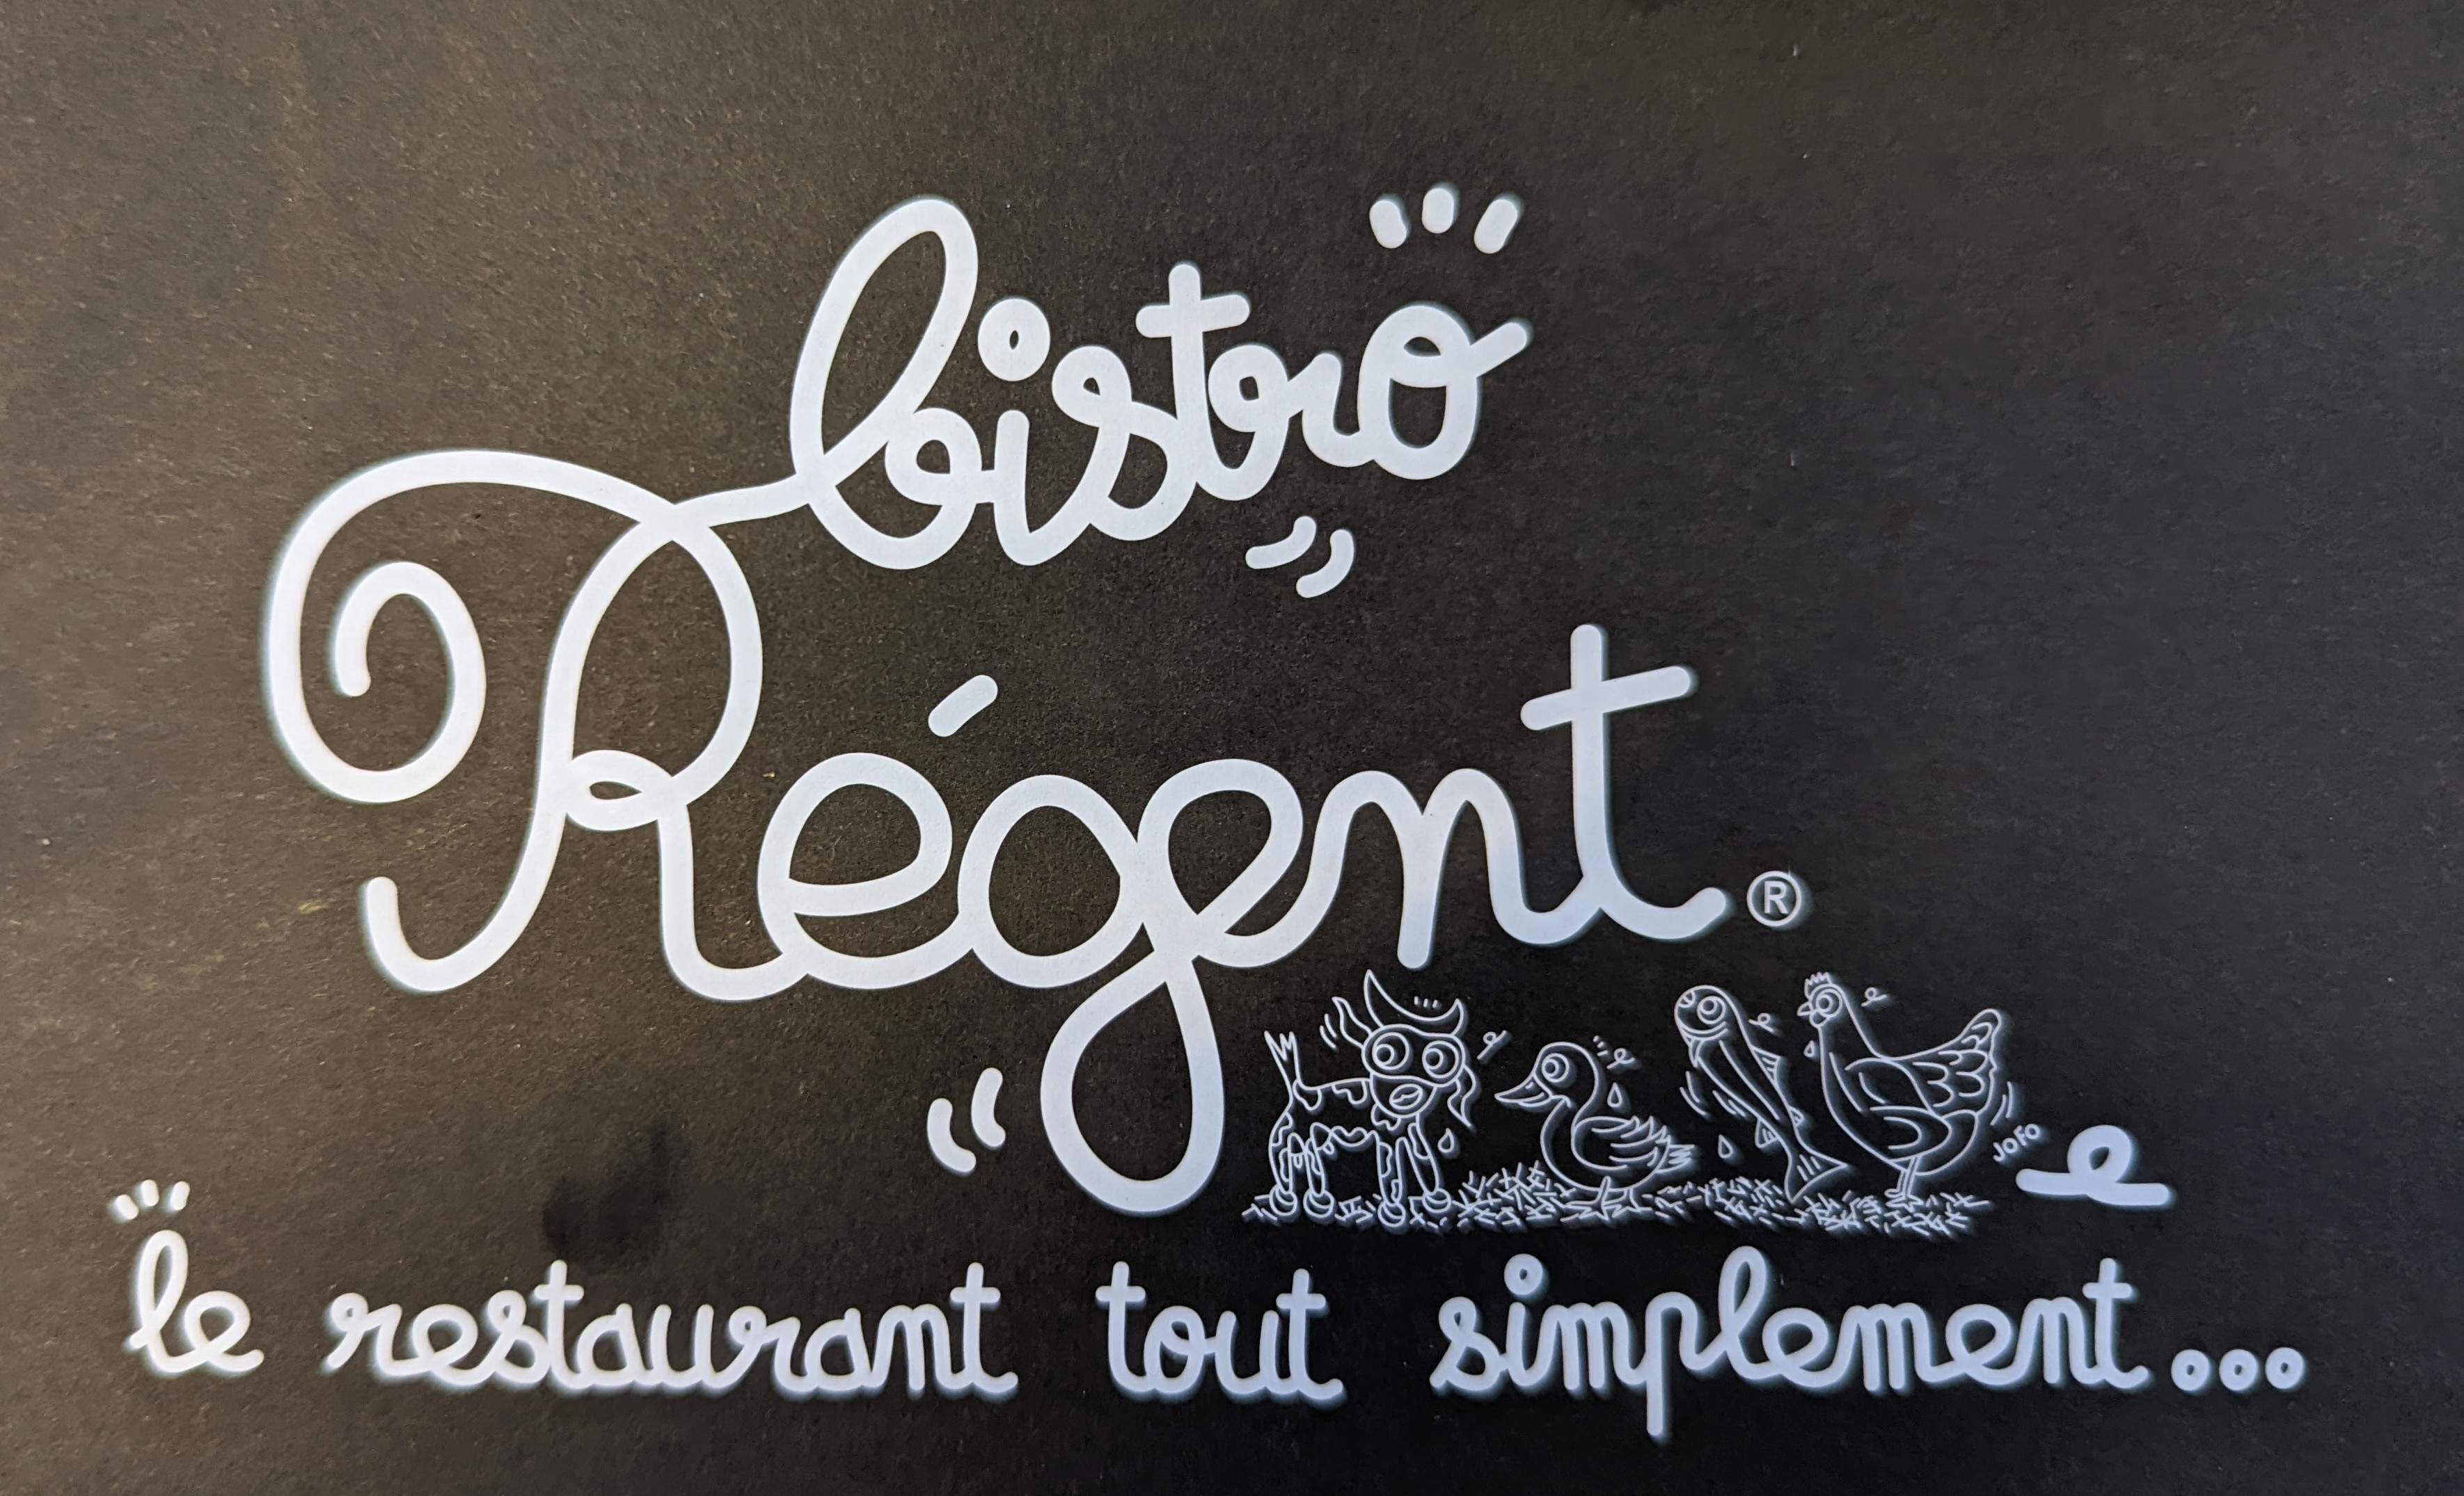 bistro
Régent ®
JOFO
le restaurant tout simplement...